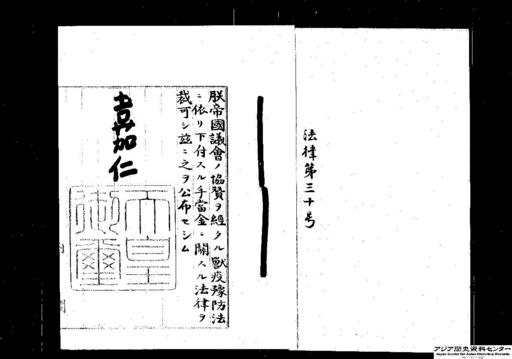 法律第三十号
朕帝國議會ノ協賛ヲ經タル獸疫豫防法
ニ依リ下付スル手當金ニ關スル法律ヲ
裁可シ茲ニ之ヲ公布セシム
嘉仁
天皇
御璽
アジア歴史資料センター
Japan Center for Asian Historical Records